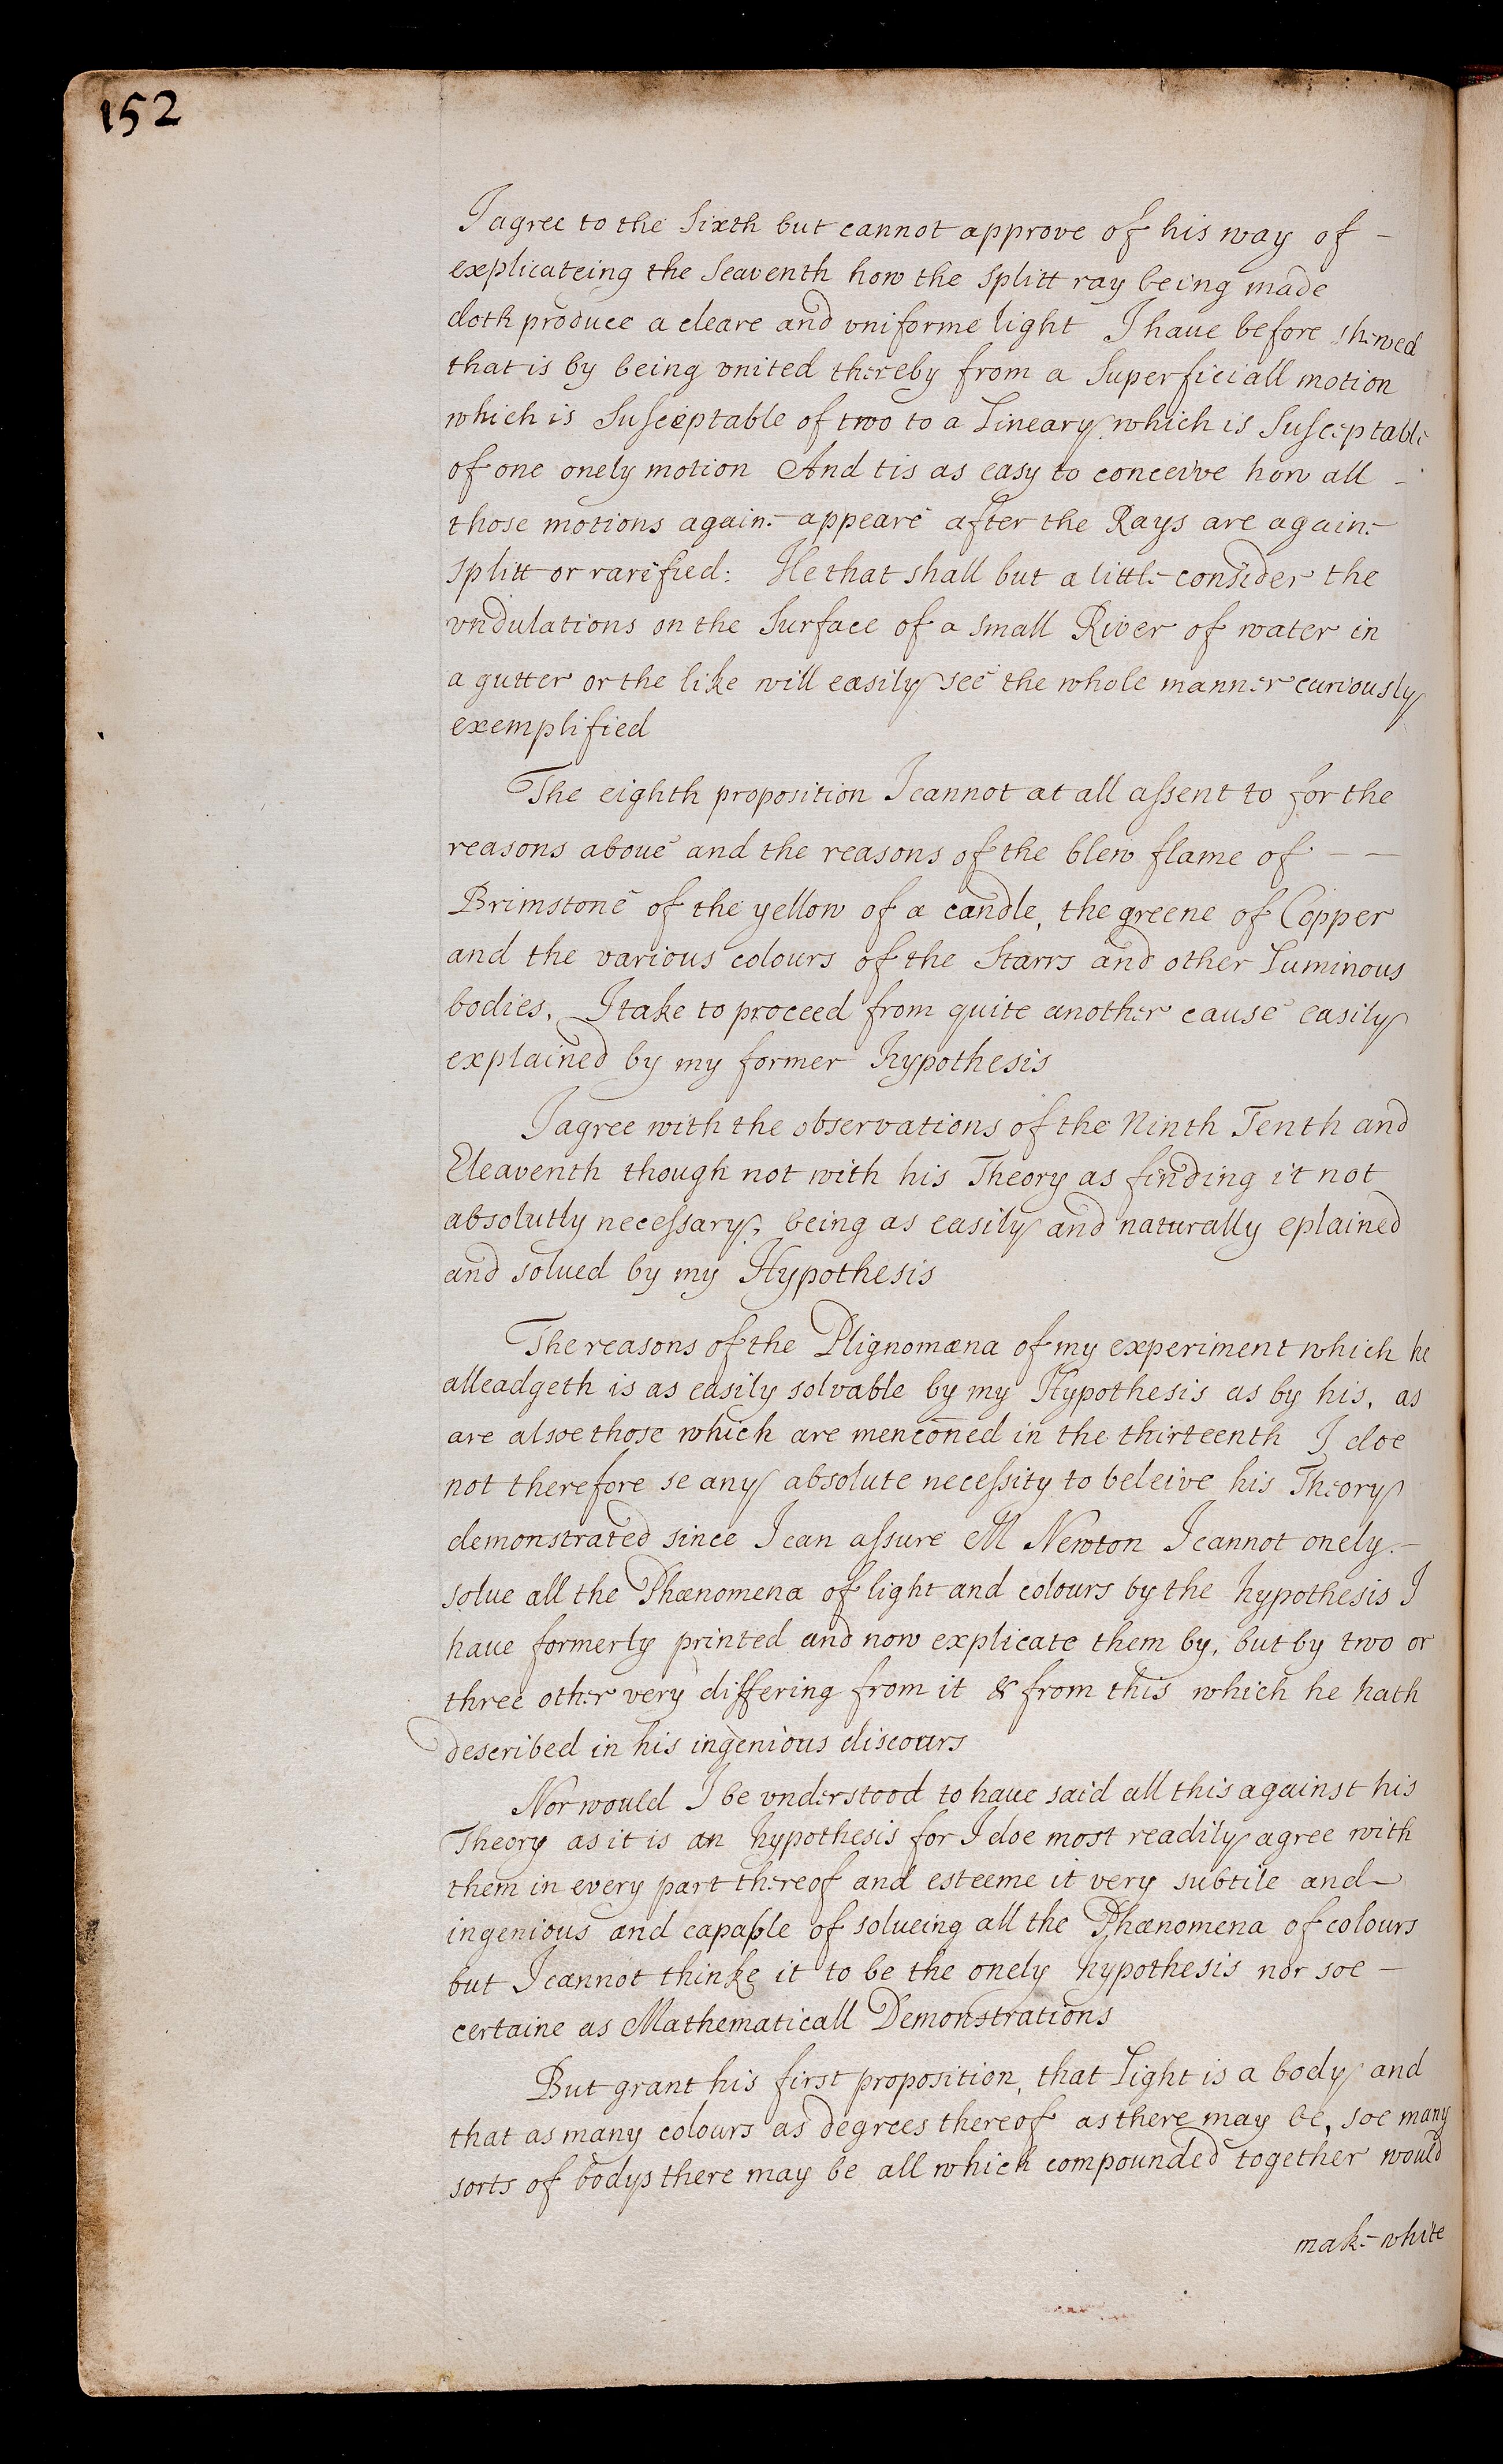 152
I agree to the Sixth but cannot approve of his way of –
explicateing the Seaventh how the splitt ray being made
doth produce a cleare and vniforme light I haue before shewed
that is by being vnited thereby from a Superficiall motion
which is Susceptable of two to a Lineary, which is Susceptable
of one onely motion And tis as easy to conceive how all –
those motions againe appeare after the Rays are againe
splitt or rarified: He that shall but a little consider the
vndulations on the Surface of a small River of water in
a gutter or the like will easily see the whole manner curiously
exemplified
The eighth proposition I cannot at all assent to for the
reasons aboue and the reasons of the blew flame of – –
Brimstone of the yellow of a candle, the greene of Copper
and the various colours of the Starrs and other Luminous
bodies, I take to proceed from quite another cause easily
explained by my former hypothesis
I agree with the observations of the Ninth Tenth and
Eleaventh though not with his Theory as finding it not
absolutly necessary, being as easily and naturally eplained
and solued by my Hypothesis
The reasons of the Plignomæna of my experiment which he
alleadgeth is as easily solvable by my Hypothesis as by his, as
are alsoe those which are mencōned in the thirteenth I doe
not therefore se any absolute necessity to beleive his Theory
demonstrated since I can assure M Newton I cannot onely –
solue all the Phænomena of light and colours by the hypothesis I
haue formerly printed and now explicate them by, but by two or
three other very differing from it & from this which he hath
described in his ingenious discours
Nor would I be vnderstood to haue said all this against his
Theory as it is an hypothesis for I doe most readily agree with
them in every part thereof and esteeme it very subtile and –
ingenious and capable of solueing all the Phænomena of colours
but I cannot thinke it to be the onely hypothesis nor soe –
certaine as Mathematicall Demonstrations
But grant his first proposition, that Light is a body and
that as many colours as degrees thereof as there may be, soe many
sorts of bodys there may be all which compounded together would
make white